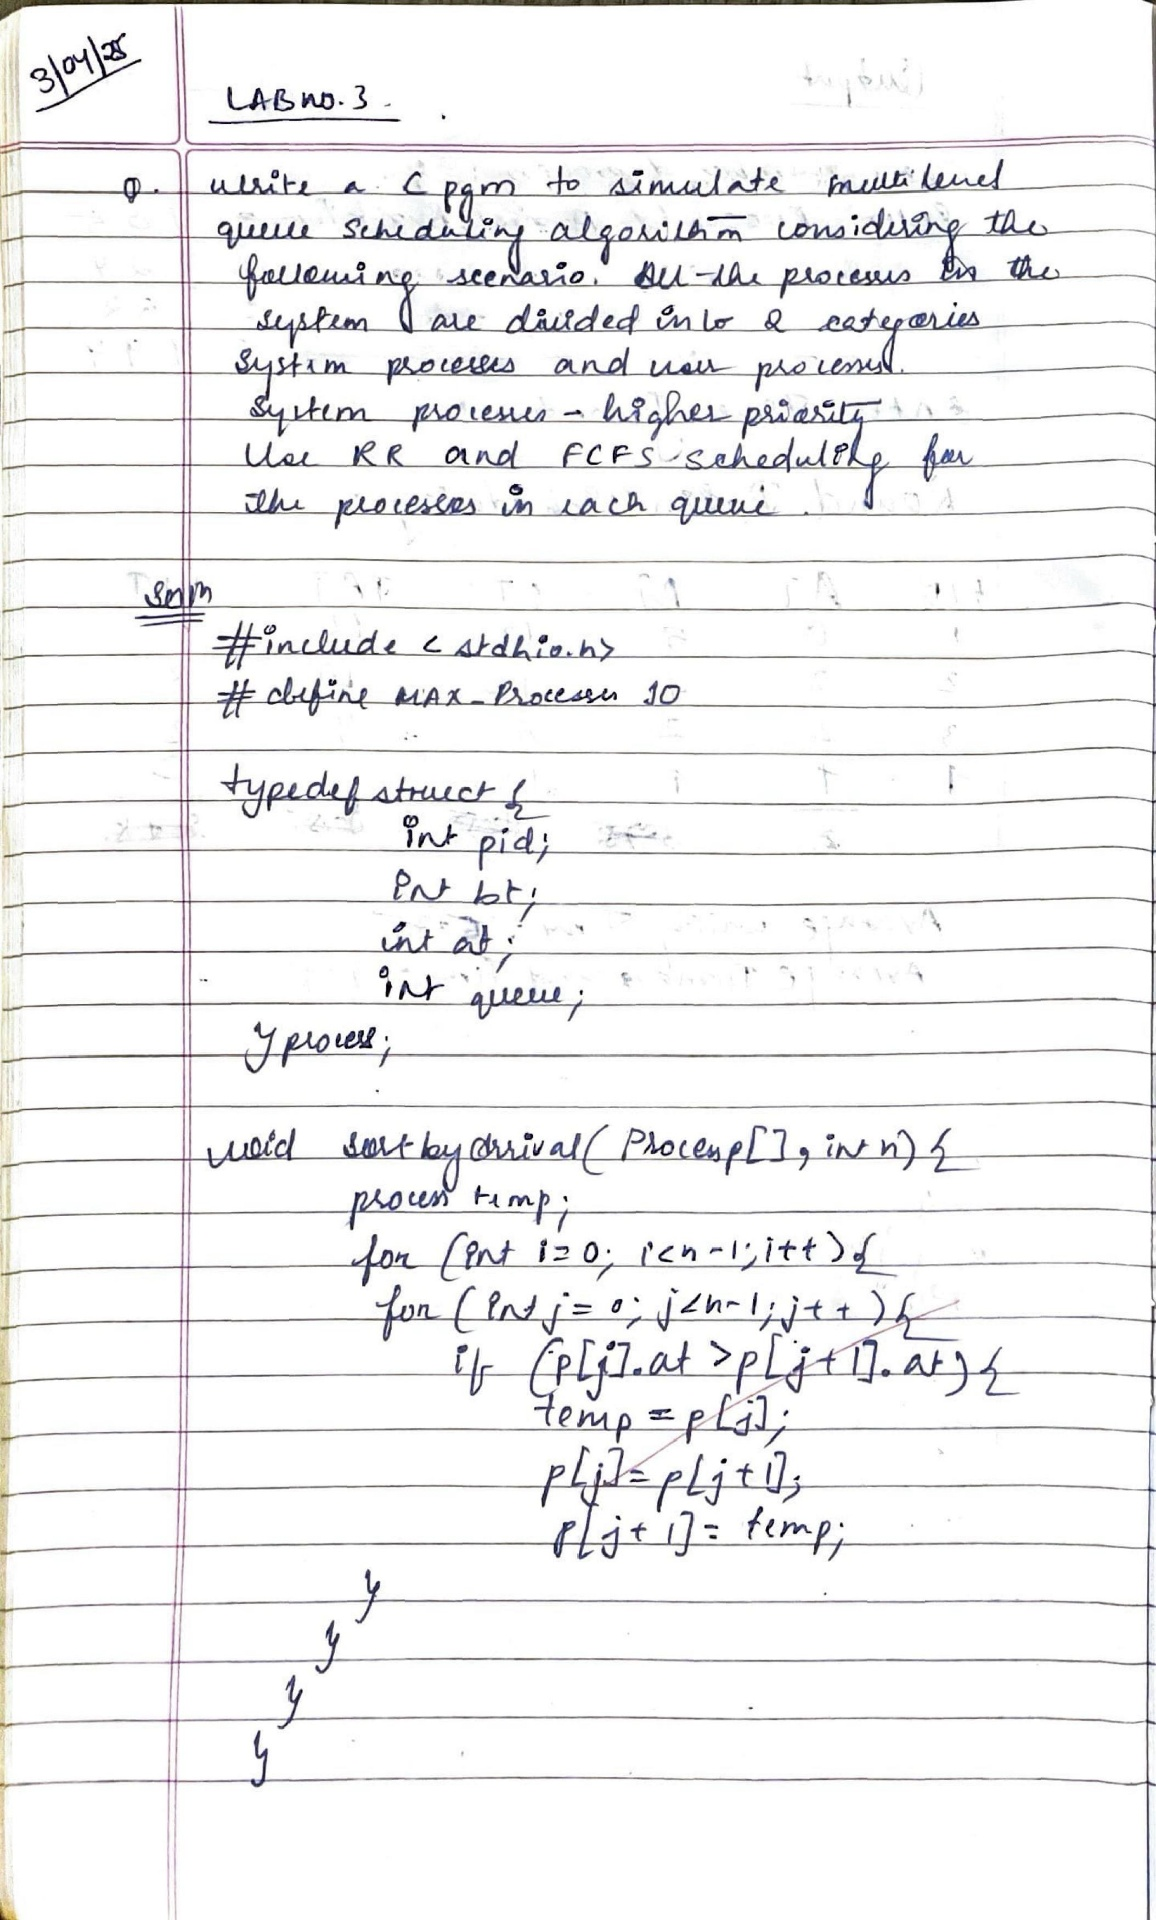 3/04/25
LAB no. 3.
Q. write a C pgm to simulate multilevel
queue scheduling algorithm considering the
following scenario. All the processes in the
system are divided into 2 categories
System processes and user processes.
System processes - higher priority
Use RR and FCFS scheduling for
the processes in each queue.
Soln
#include <stdhio.h>
# define MAX_Processes 10
typedef struct {
int pid;
int bt;
int at;
int queue;
} process;
void sortbyArrival( Process p[], int n) {
process temp;
for (int i=0; i<n-1; i++) {
for (int j=0; j<n-1; j++) {
if (p[j].at >p[j+1].at) {
temp = p[j];
p[j]= p[j+1];
p[j+1]= temp;
}
}
}
}